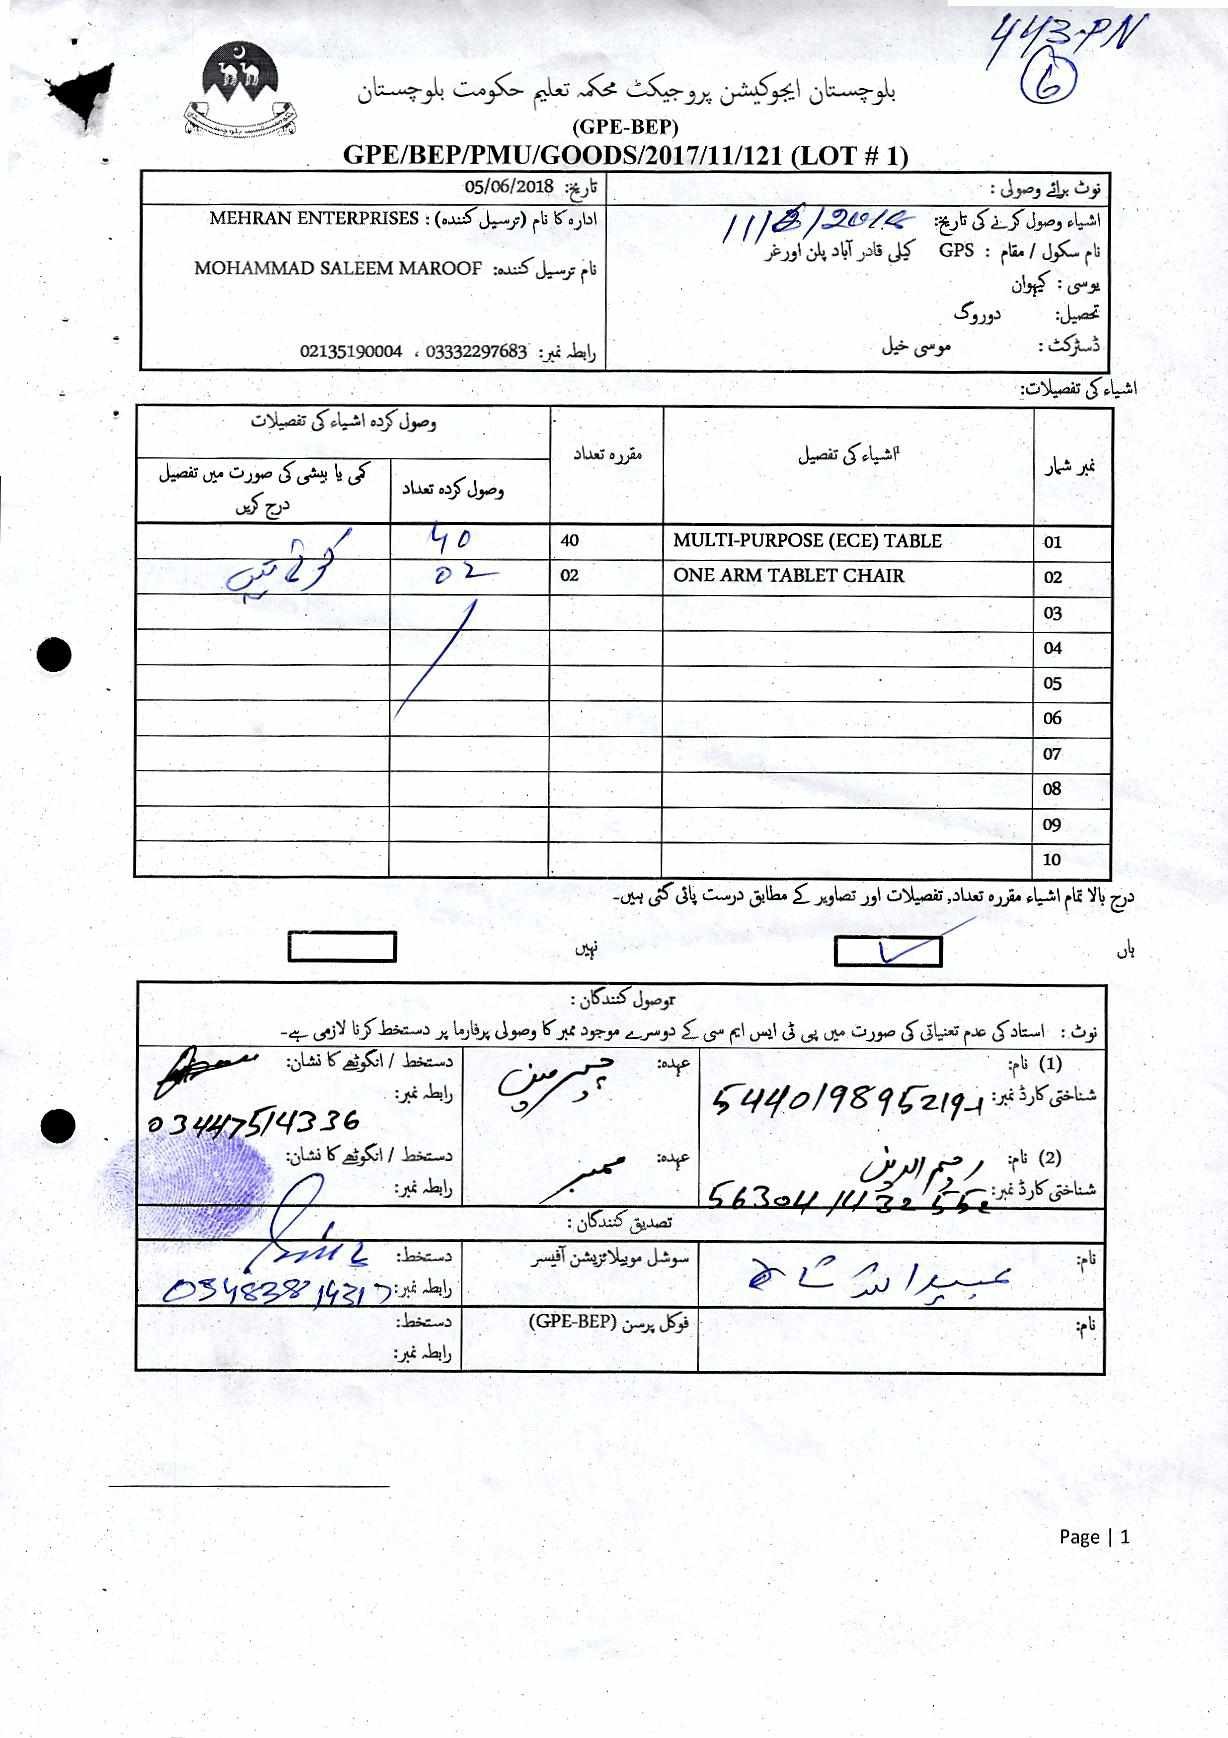 443-PN
6
بلوچستان ایجوکیشن پروجیکٹ محکمہ تعلیم حکومت بلوچستان
(GPE-BEP)
GPE/BEP/PMU/GOODS/2017/11/121 (LOT # 1)
نوٹ برائے وصولی :
تاریخ: 05/06/2018
اشیاء وصول کرنے کی تاریخ:
ادارہ کا نام (ترسیل کنندہ) : MEHRAN ENTERPRISES
نام سکول / مقام : GPS کیلی قادر آباد پلن اورغر
نام ترسیل کنندہ: MOHAMMAD SALEEM MAROOF
یوسی : کیہوان
تحصیل: دوروگ
ڈسٹرکٹ : موسی خیل
رابطہ نمبر: 03332297683 ، 02135190004
اشیاء کی تفصیلات:
نمبر شمار
اشیاء کی تفصیل
مقررہ تعداد
وصول کردہ اشیاء کی تفصیلات
وصول کردہ تعداد
کمی یا بیشی کی صورت میں تفصیل درج کریں
01 MULTI-PURPOSE (ECE) TABLE 40 40
02 ONE ARM TABLET CHAIR 02 02
03
04
05
06
07
08
09
10
درج بالا تمام اشیاء مقررہ تعداد, تفصیلات اور تصاویر کے مطابق درست پائی گئی ہیں۔
ہاں ✓ نہیں
وصول کنندگان :
نوٹ : استاد کی عدم تعنیاتی کی صورت میں پی ٹی ایس ایم سی کے دوسرے موجود ممبر کا وصولی پرفارما پر دستخط کرنا لازمی ہے۔
(1) نام:
عہدہ: چیرمین
دستخط / انگوٹھے کا نشان:
شناختی کارڈ نمبر:
رابطہ نمبر:
03447514336
(2) نام: رحیم الدین
عہدہ: ممبر
دستخط / انگوٹھے کا نشان:
شناختی کارڈ نمبر:
رابطہ نمبر:
تصدیق کنندگان :
نام: عبید اللہ شاہ
سوشل موبیلائزیشن آفیسر
دستخط:
رابطہ نمبر:
نام:
فوکل پرسن (GPE-BEP)
دستخط:
رابطہ نمبر:
Page | 1